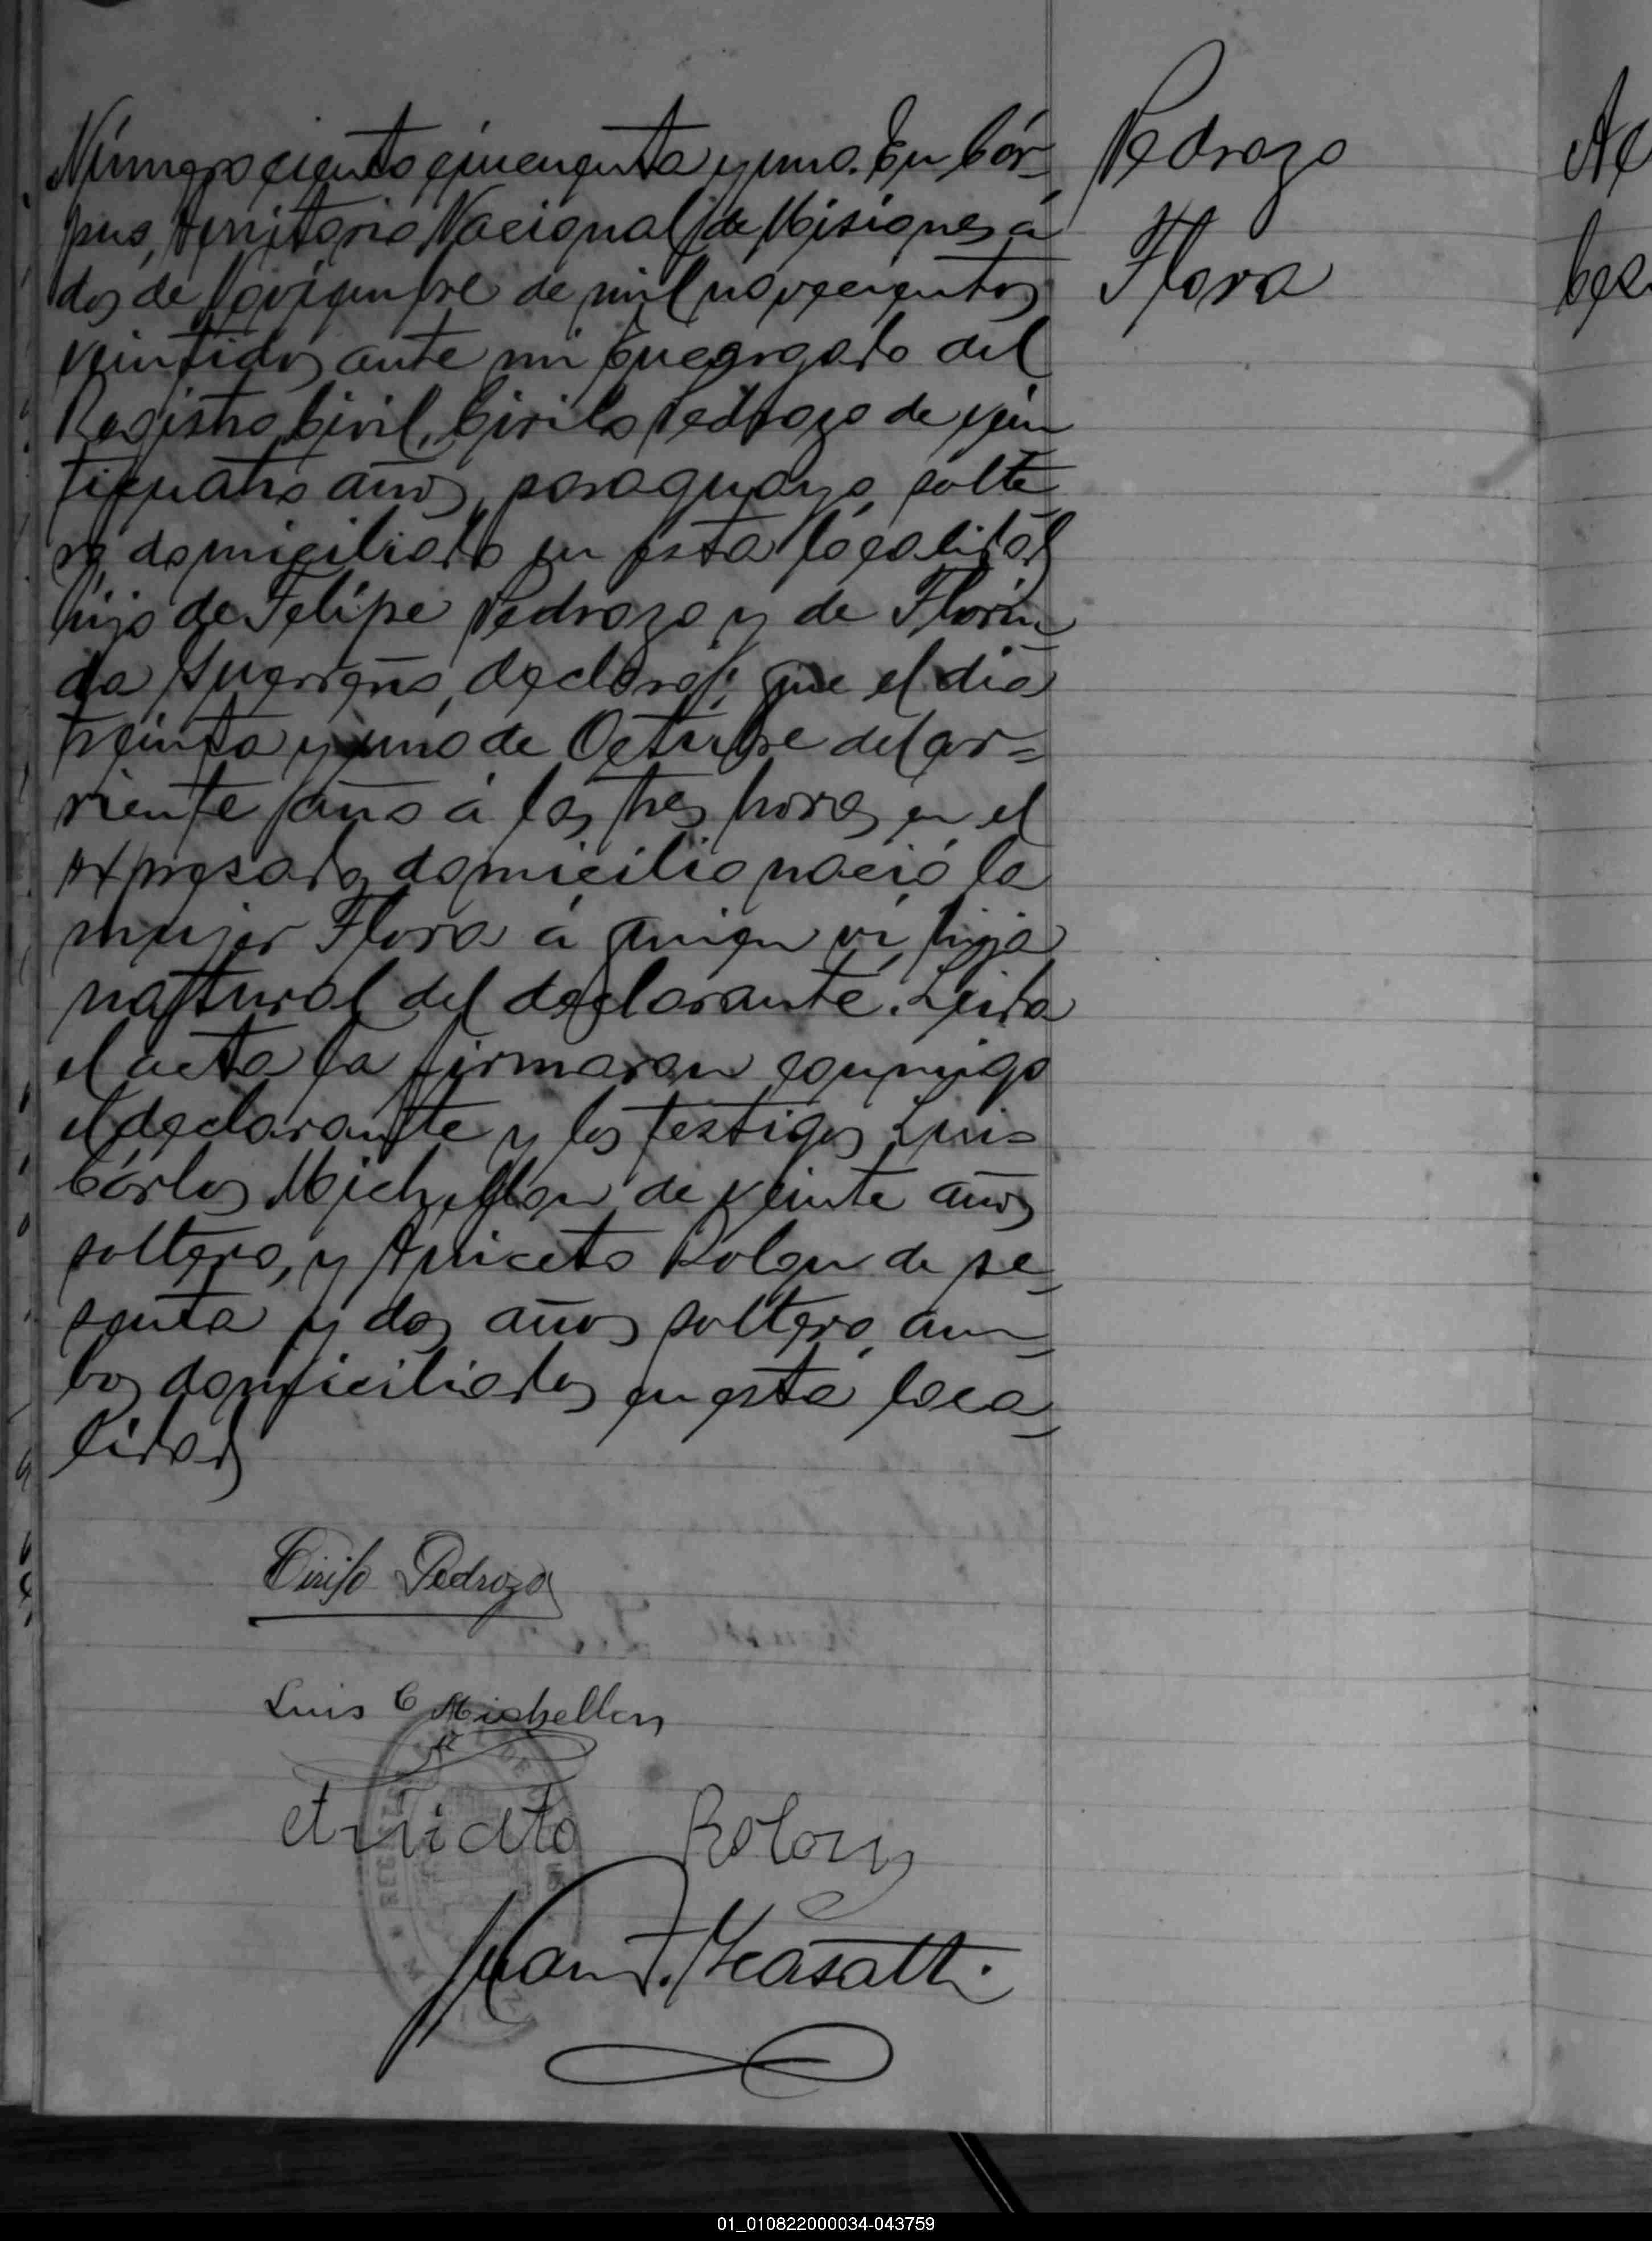 Número ciento cincuenta y uno. En Cór-
pus, Territorio Nacional de Misiones á
dos de Noviembre de mil novecientos
veintidos ante mi Encargado del
Registro Civil, Cirilo Pedrozo de vein
ticuatro años, paraguayo, solte-
ro domiciliado en esta localidad
hijo de Felipe Pedrozo y de Florin-
da declaró: que el dia
treinta y uno de Octubre del cor=
riente año á las tres horas en el
expresado domicilio nació la
mujer Flora á quien ví, hija
natural del declarante. Leida
el acta la firmaron conmigo
el declarante y los testigos Luis=
Cárlos Michellon de veinte años
soltero, y Aniceto Rolon de se-
senta y dos años soltero, am-
bos domiciliados en esta loca-
lidad
Pedrozo
Flora
Cirilo Pedrozo
Luis C Michellon
Aniceto Rolon
Juan F.
REGISTRO
01_010822000034-043759